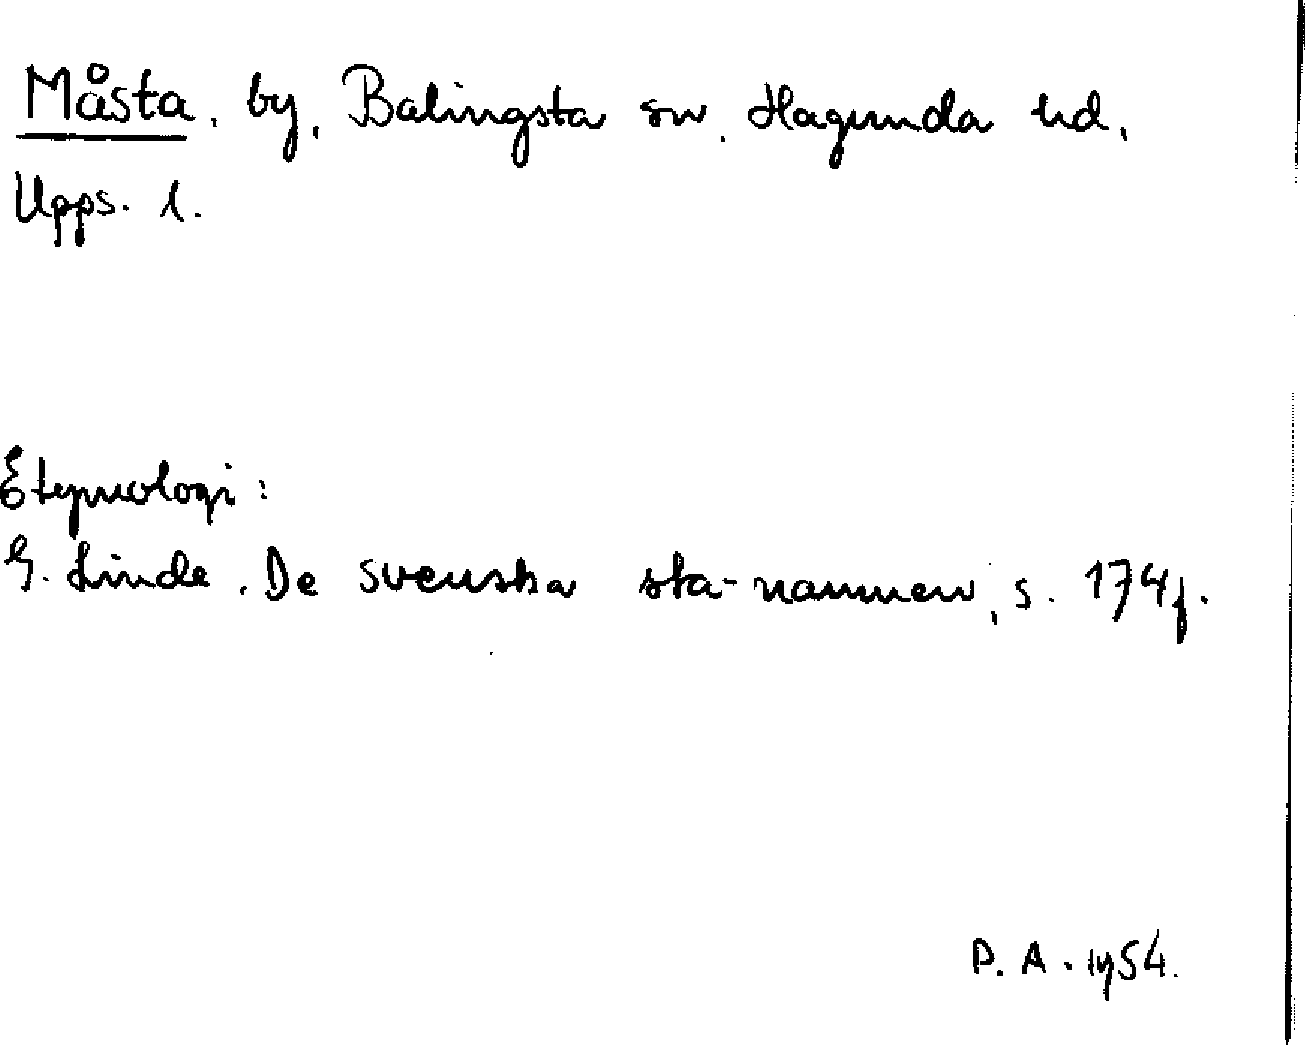 Måsta, by, Balingsta sn, Hagunda hd,
Upps. l.
Etymologi:
G. Linde, De svenska sta-namnen, s. 174f.
D. A. 1954.